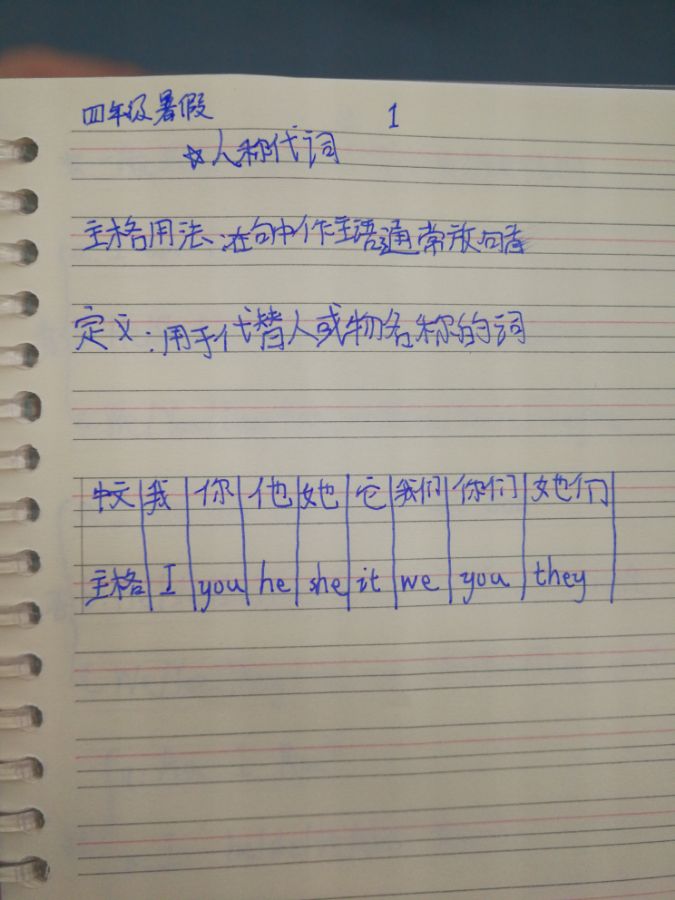 四年级暑假 1
☆人称代词
主格用法：在句中作主语通常放句首
定义：用于代替人或物名称的词
中文 我 你 他 她 它 我们 你们 她们
主格 I you he she it we you they